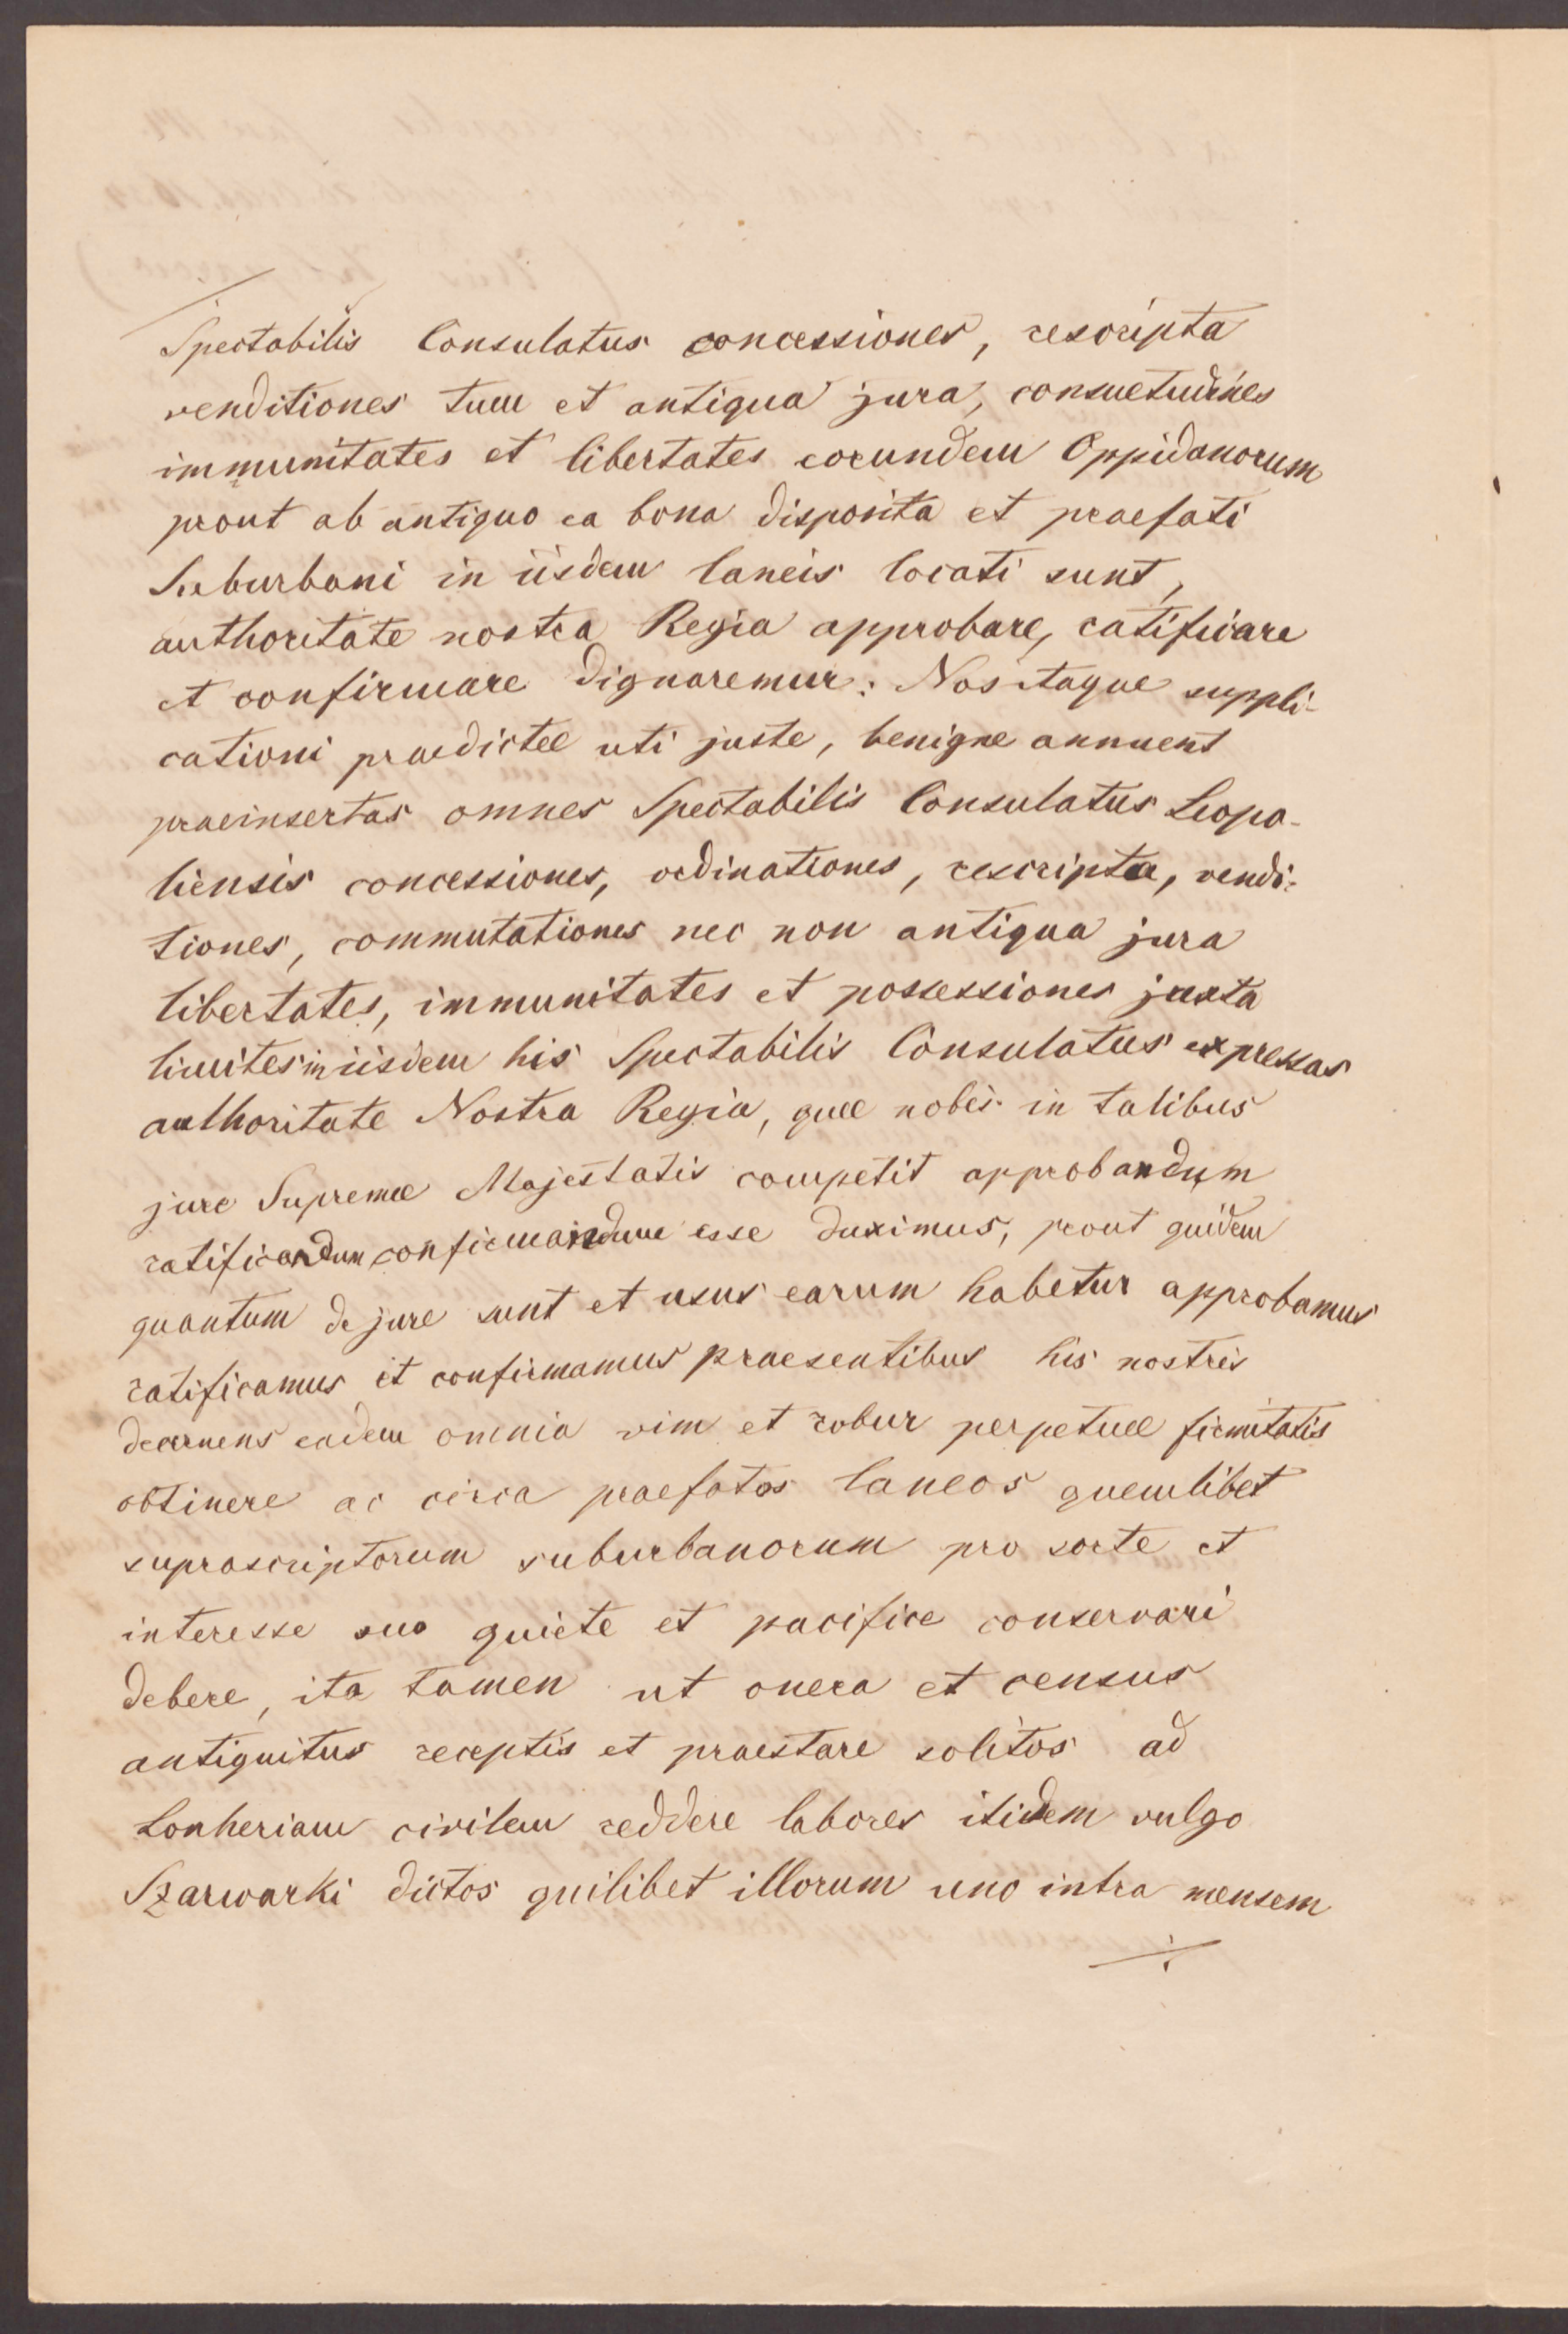 Spectabilis Consulatus concessiones, rescripta
venditiones tum et antiqua jura, consuetudines
immunitates et libertates eorundem Oppidanorum
prout ab antiquo ea bona disposita et praefati
Suburbani in iisdem laneis locati sunt,
authoritate nostra Regia approbare, ratificare
et confirmare dignaremur: Nos itaque suppli-
cationi praedictae uti juste, benigne annuent
praeinsertas omnes Spectabilis Consulatus Leopo-
liensis concessiones, ordinationes, rescripta, vendi-
tiones, commutationes nec non antiqua jura
libertates, immunitates et possessiones juxta
limites in iisdem his Spectabilis Consulatus expressas
authoritate Nostra Regia, quae nobis in talibus
jure Supremae Majestatis competit approbandum
ratificandum confirmandum esse duximus, prout quidem
quantum de jure sunt et usus earum habetur approbamus
ratificamus et confirmamus praesentibus his nostris
decernens eadem omnia vim et robur perpetuae firmitatis
obtinere ac circa praefatos laneos quemlibet
suprascriptorum suburbanorum pro sorte et
interesse suo quiete et pacifice conservari
debere, ita tamen ut onera et census
antiquitus receptis et praestare solitos ad
Lonheriam civilem reddere labores itidem vulgo
Szarwarki dictos quilibet illorum uno intra mensem